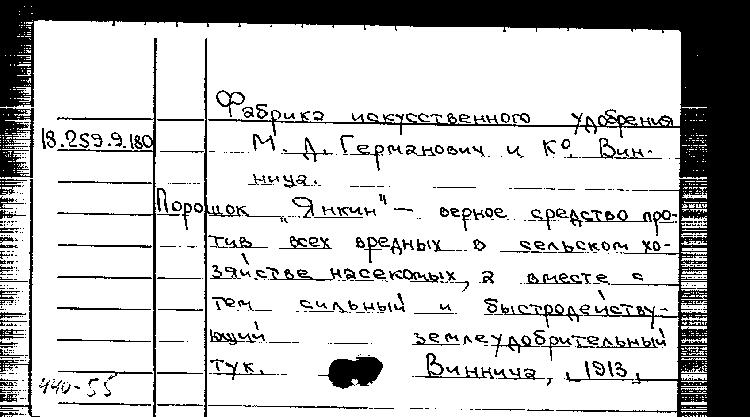 Фабрика искусственного удобрения
18.259.9.180
М. Д. Германович и Ко. Вин-
ница.
Порошок „Янкин" — верное средство про-
тив всех вредных в сельском хо-
зяйстве насекомых, а вместе с
тем сильный и быстродейству-
ющий землеудобрительный
тук. Винница, 1913,
440-55